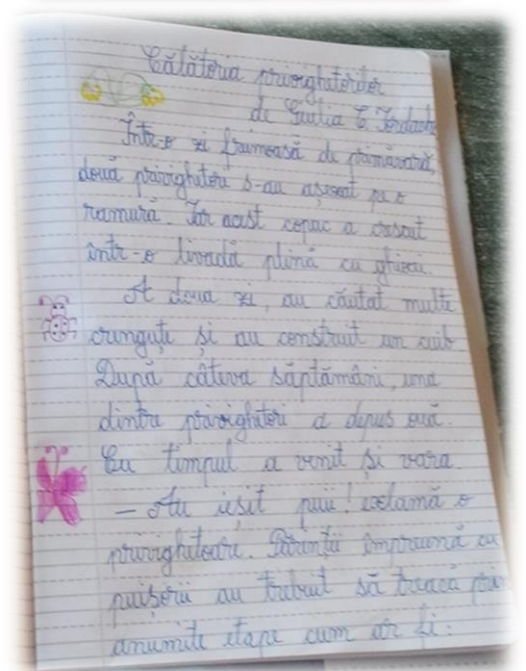 Călătoria privighetorilor
de Giulia E. Iordache
Într-o zi frumoasă de primăvară,
două privighetori s-au așezat pe o
ramură. Iar acest copac a crescut
într-o livadă plină cu ghioci.
A doua zi, au căutat multe
crenguțe și au construit un cuib.
După câteva săptămâni, una
dintre privighetori a depus ouă.
Cu timpul a venit și vara.
– Au ieșit puii! exclamă o
privighetoare. Părinții împreună cu
puișorii au trebuit să treacă prin
anumite etape cum ar fi: